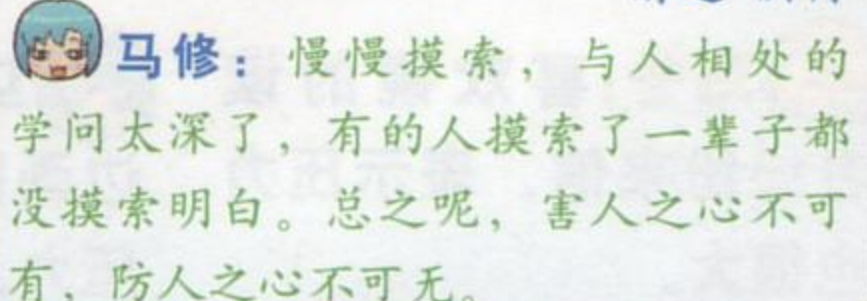 马修：慢慢摸索，与人相处的
学问太深了，有的人摸索了一辈子都
没摸索明白。总之呢，害人之心不可
有，防人之心不可无。